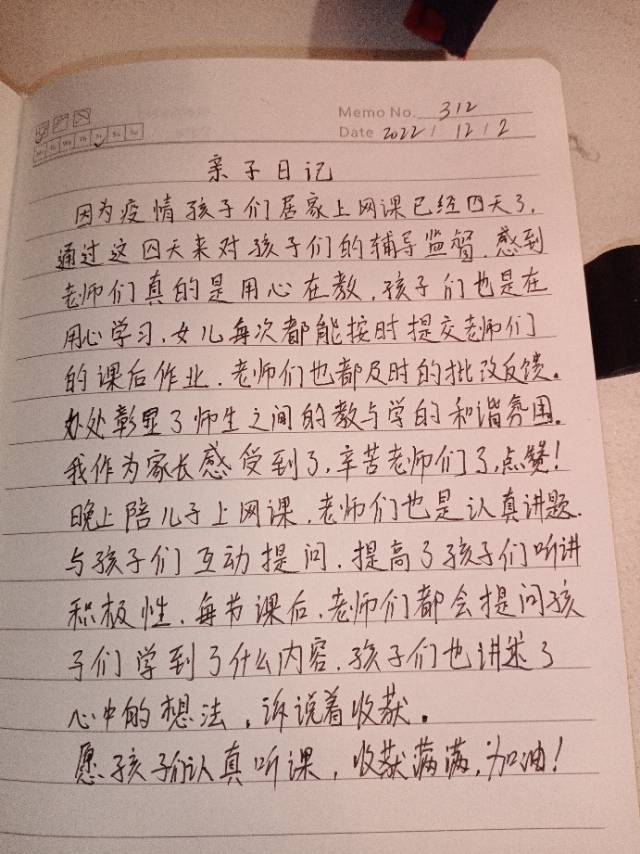 Memo No. 312
Date 2022 / 12 / 2
亲子日记
因为疫情孩子们居家上网课已经四天了,
通过这四天来对孩子们的辅导监督,感到
老师们真的是用心在教,孩子们也是在
用心学习,女儿每次都能按时提交老师们
的课后作业,老师们也都及时的批改反馈。
处处彰显了师生之间的教与学的和谐氛围。
我作为家长感受到了,辛苦老师们了,点赞!
晚上陪儿子上网课,老师们也是认真讲题,
与孩子们互动提问,提高了孩子们听讲
积极性,每节课后,老师们都会提问孩
子们学到了什么内容,孩子们也讲述了
心中的想法,诉说着收获。
愿孩子们认真听课,收获满满,加油!